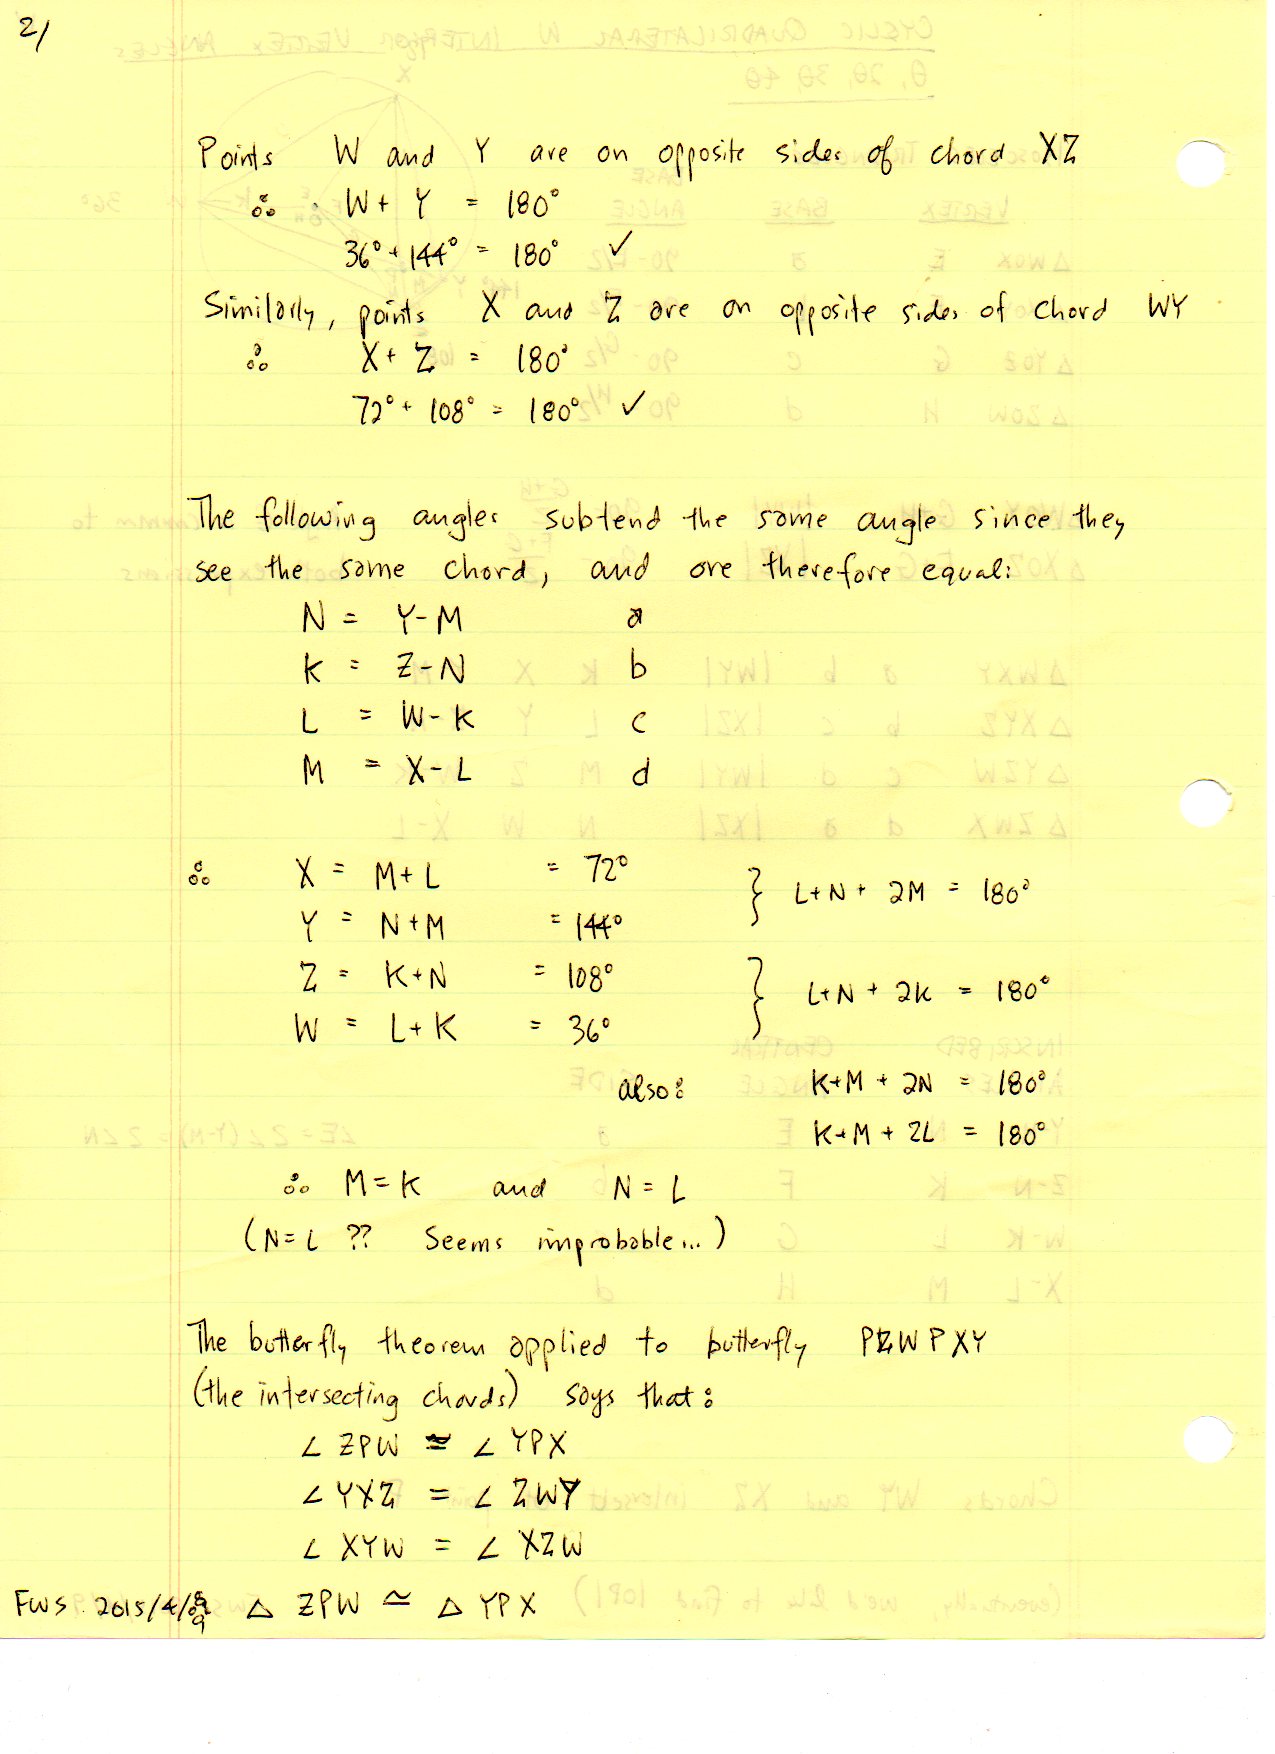 2/
Points W and Y are on opposite sides of chord XZ
∴ W + Y = 180°
36° + 144° = 180° ✓
Similarly, points X and Z are on opposite sides of chord WY
∴ X + Z = 180°
72° + 108° = 180° ✓
The following angles subtend the same angle since they
see the same chord, and are therefore equal:
N = Y-M a
K = Z-N b
L = W-K c
M = X-L d
∴ X = M+L = 72° } L+N + 2M = 180°
Y = N+M = 144°
Z = K+N = 108° } L+N + 2K = 180°
W = L+K = 36°
also: K+M + 2N = 180°
K+M + 2L = 180°
∴ M=K and N=L
(N=L ?? Seems improbable...)
The butterfly theorem applied to butterfly PZWPXY
(the intersecting chords) says that:
∠ ZPW ≅ ∠ YPX
∠ YXZ = ∠ ZWY
∠ XYW = ∠ XZW
FWS 2015/4/9 △ ZPW ≃ △ YPX